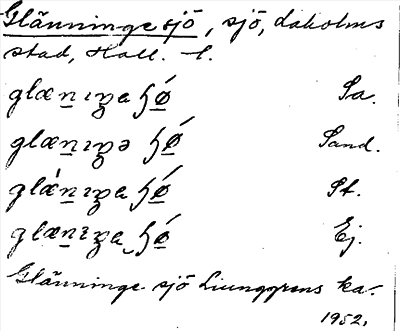 Glänninge sjö, sjö, Laholms
stad, Hall. l.
glæn̲ıŋa ɧǿ̲ Sa.
glæn̲ıŋə ɧǿ̲ Sand.
glæ̀n̲ıŋa ɧǿ̲ St.
glæn̲ıŋa ɧǿ̲ Ej.
Glänninge sjö Ljunggrens ka.
1952.